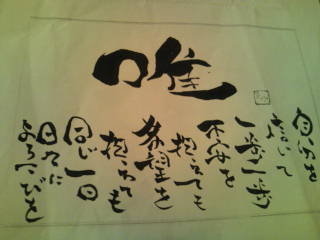 唯
自分を
信じて
一歩一歩
不安を
抱えても
希望を
抱いても
同じ一日
日々に
よろこびを